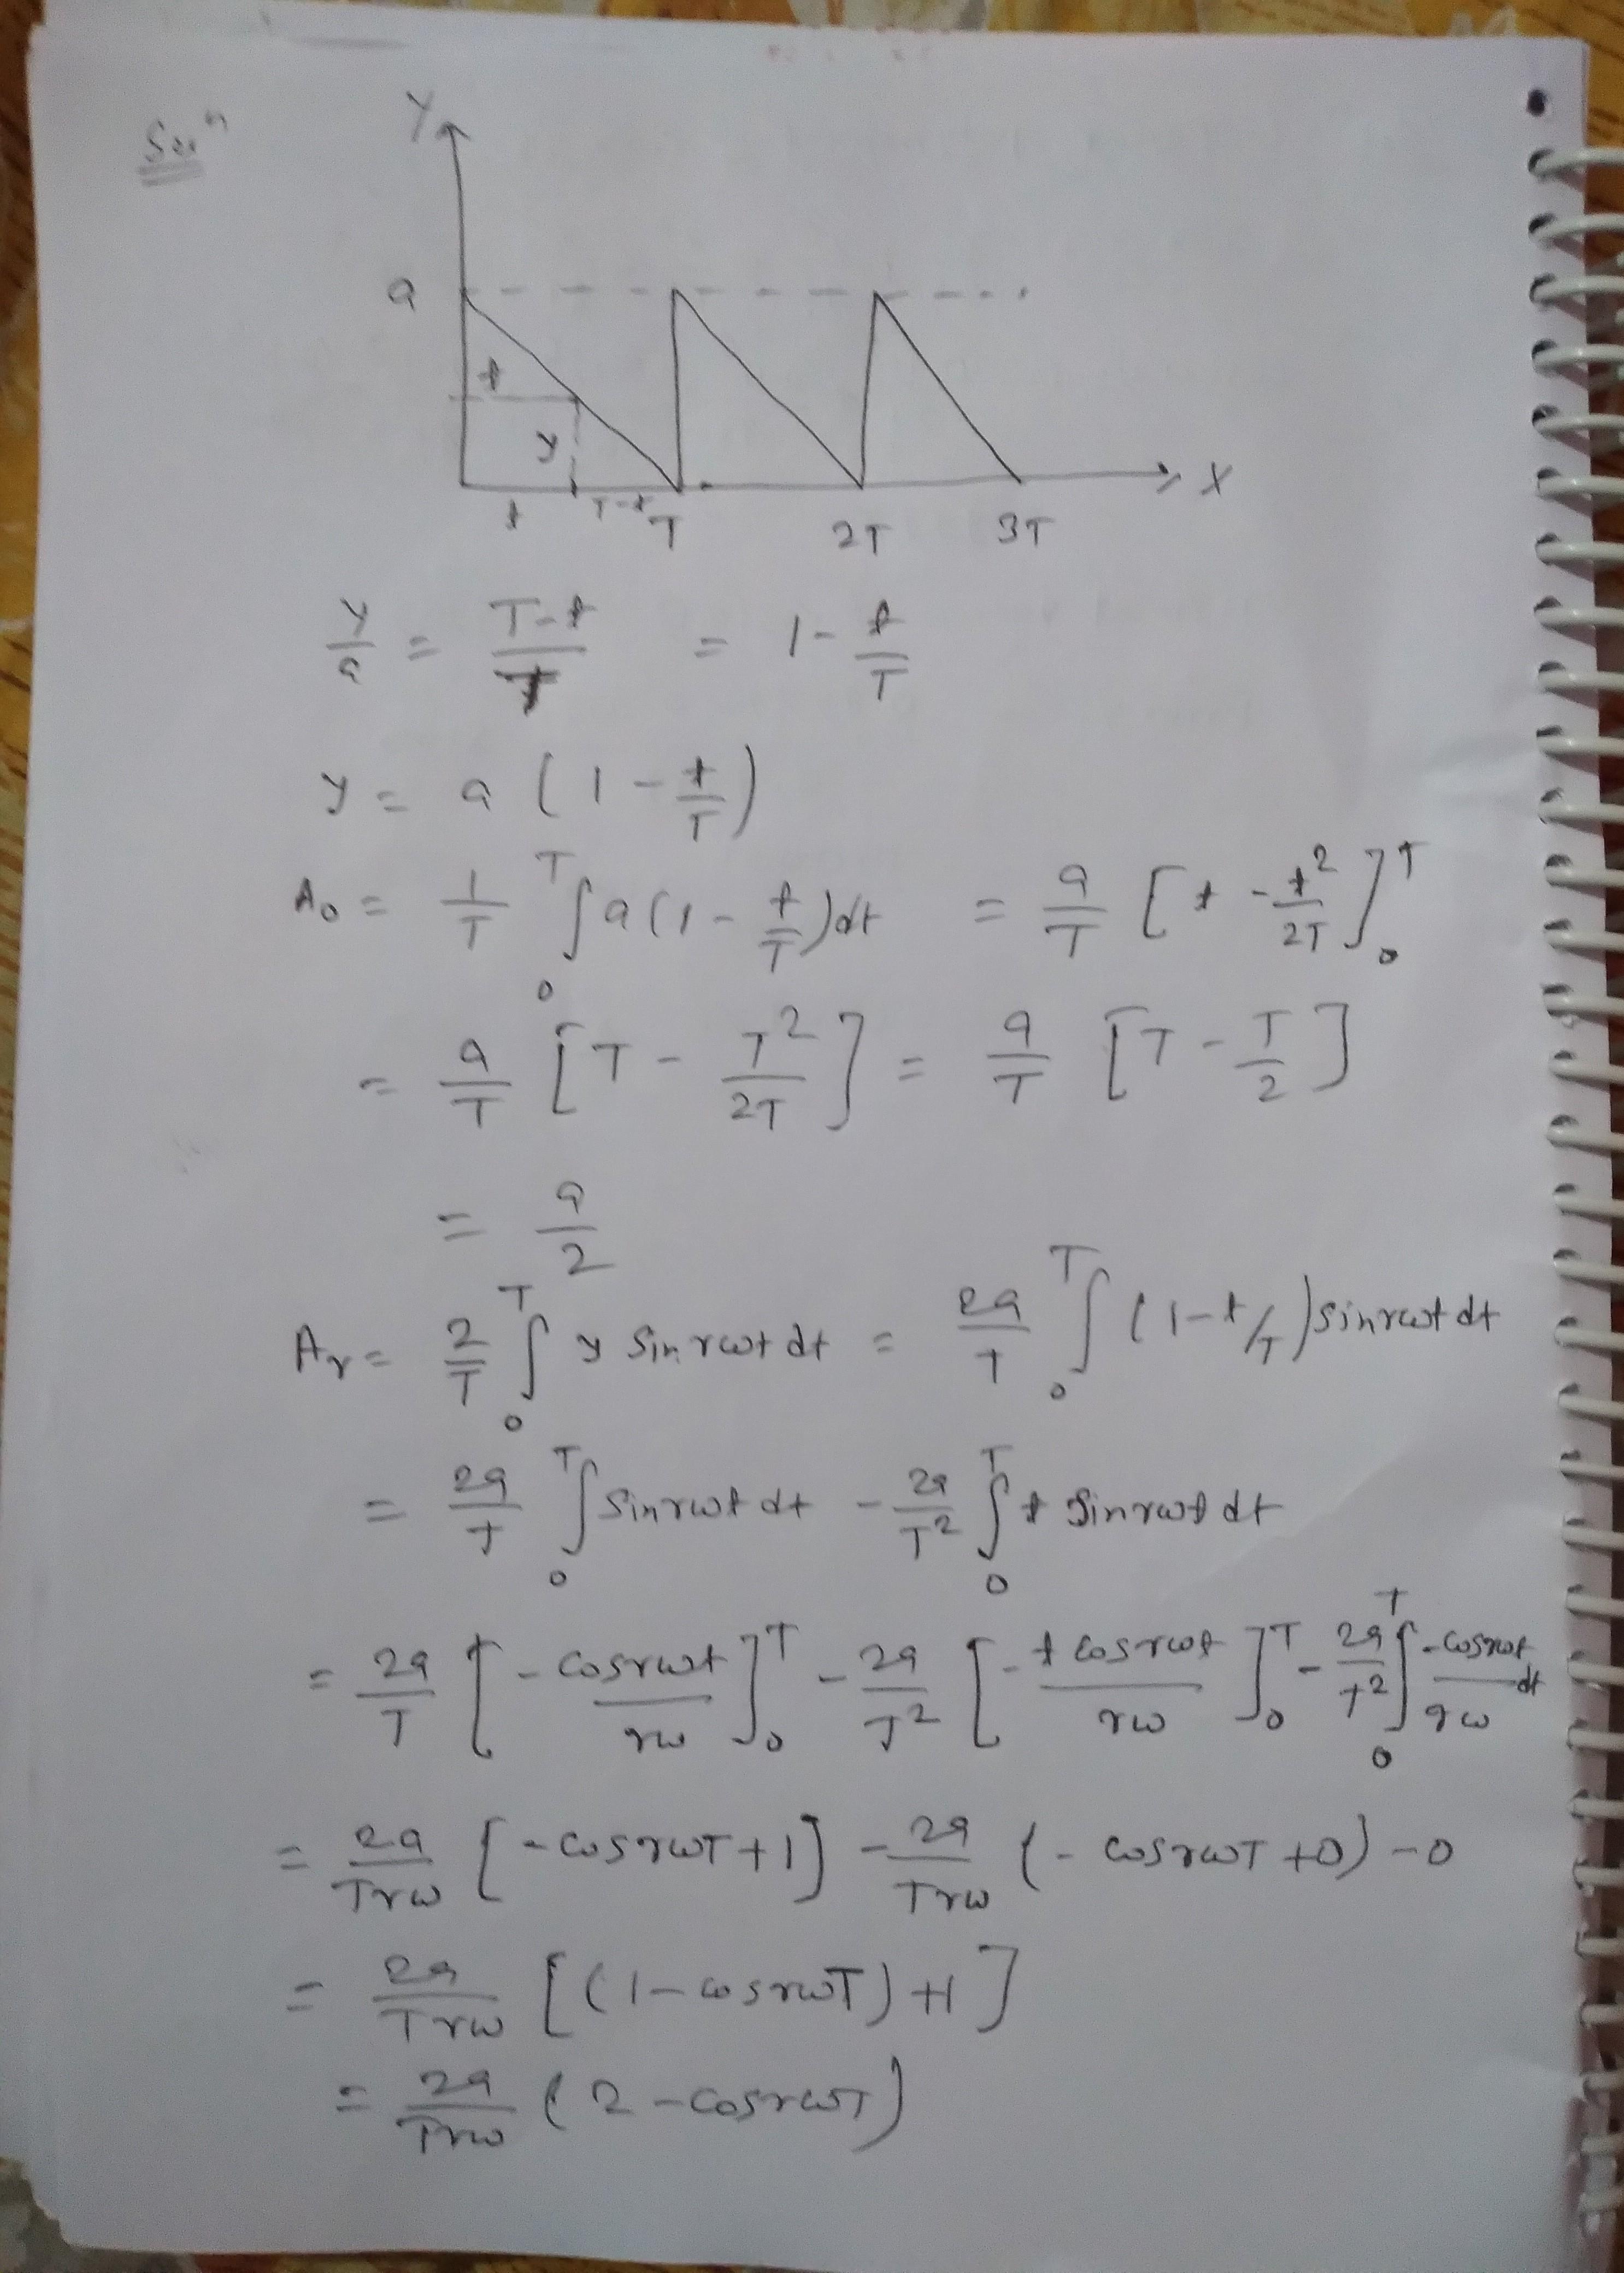 Solⁿ
Y
a
t
y
t T-t T 2T 3T X
y/a = (T-t)/T = 1 - t/T
y = a (1 - t/T)
A₀ = 1/T ∫₀ᵀ a(1 - t/T)dt = a/T [t - t²/2T]₀ᵀ
= a/T [T - T²/2T] = a/T [T - T/2]
= a/2
Aᵣ = 2/T ∫₀ᵀ y sin rωt dt = 2a/T ∫₀ᵀ (1-t/T) sin rωt dt
= 2a/T ∫₀ᵀ sin rωt dt - 2a/T² ∫₀ᵀ t sin rωt dt
= 2a/T [- cos rωt/rω]₀ᵀ - 2a/T² [- t cos rωt/rω]₀ᵀ - 2a/T² ∫₀ᵀ -cos rωt/rω dt
= 2a/Trω [-cos rωT + 1] - 2a/Trω (- cos rωT + 0) - 0
= 2a/Trω [(1 - cos rωT) + 1]
= 2a/Trω (2 - cos rωT)